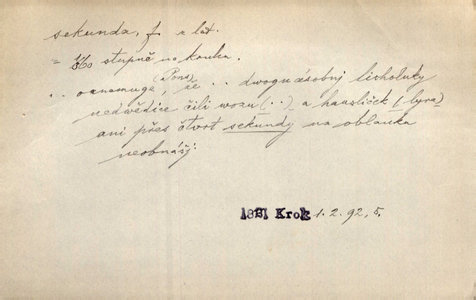 sekunda, f. z lat.
= 1/60 stupně na kruhu.
.. oznamuge, (Pond) že .. dwognásobný licholuky
nedwědice čili wozu (..) a hausliček (lyra)
ani přes čtvrt sekundy na oblauka
neobnášj:
1821 Krok 1.2.92,5.